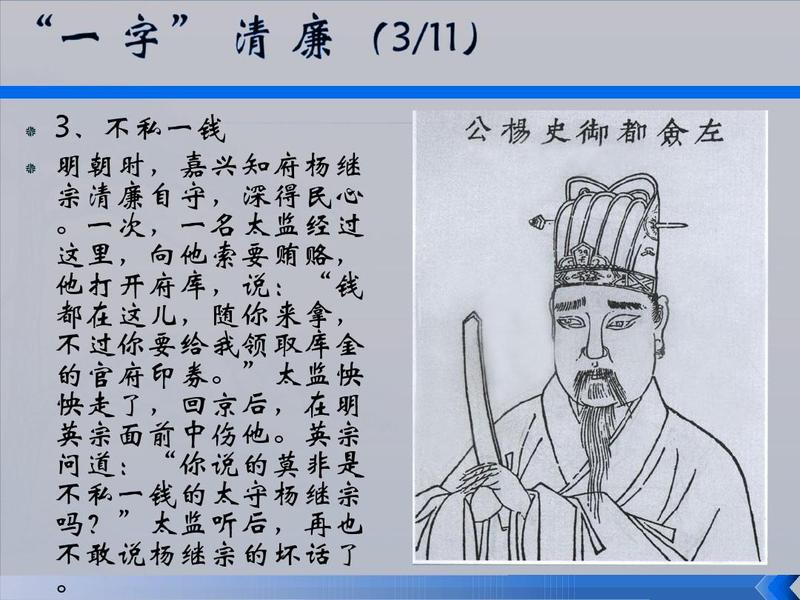 “一字”清廉（3/11）
3、不私一钱
明朝时，嘉兴知府杨继
宗清廉自守，深得民心
。一次，一名太监经过
这里，向他索要贿赂，
他打开府库，说：“钱
都在这儿，随你来拿，
不过你要给我领取库金
的官府印券。”太监怏
怏走了，回京后，在明
英宗面前中伤他。英宗
问道：“你说的莫非是
不私一钱的太守杨继宗
吗？”太监听后，再也
不敢说杨继宗的坏话了
。
公楊史御都僉左